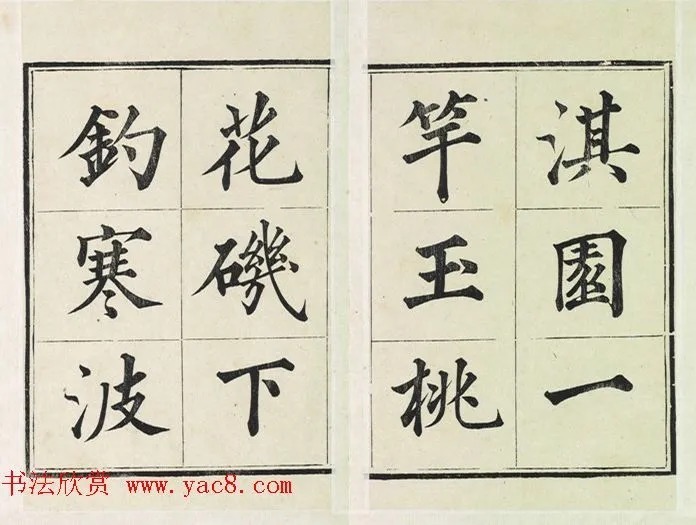 淇園一
竿玉桃
花磯下
釣寒波
书法欣赏 www.yac8.com